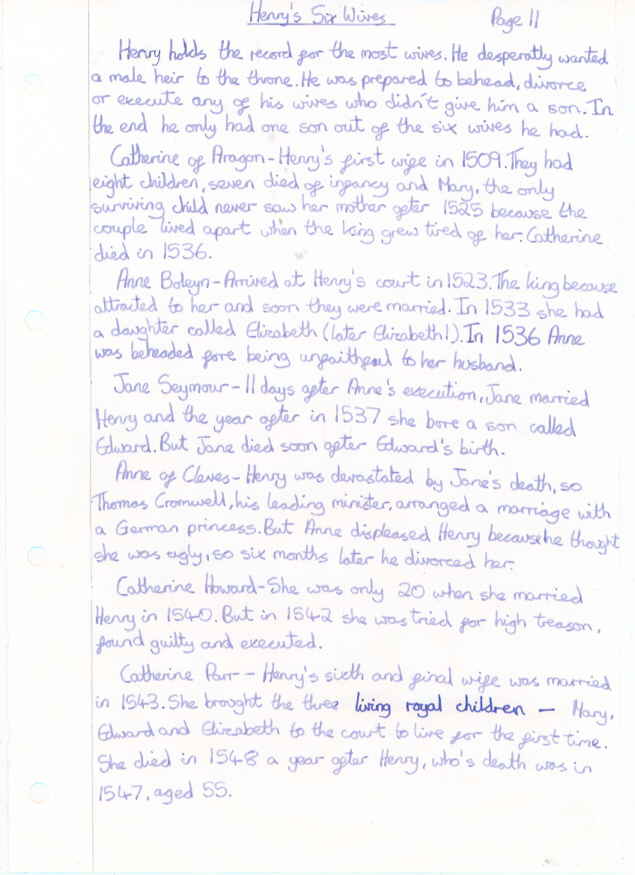 Henry's Six Wives Page 11
Henry holds the record for the most wives. He desperatly wanted
a male heir to the throne. He was prepared to behead, divorce
or execute any of his wives who didn't give him a son. In
the end he only had one son out of the six wives he had.
Catherine of Aragon - Henry's first wife in 1509. They had
eight children, seven died of infancy and Mary, the only
surviving child never saw her mother after 1525 because the
couple lived apart when the king grew tired of her. Catherine
died in 1536.
Anne Boleyn - Arrived at Henry's court in 1523. The king because
attracted to her and soon they were married. In 1533 she had
a daughter called Elizabeth (later Elizabeth I). In 1536 Anne
was beheaded fore being unfaithful to her husband.
Jane Seymour - 11 days after Anne's execution, Jane married
Henry and the year after in 1537 she bore a son called
Edward. But Jane died soon after Edward's birth.
Anne of Cleves - Henry was devastated by Jane's death, so
Thomas Cromwell, his leading minister, arranged a marriage with
a German princess. But Anne displeased Henry because he thought
she was ugly, so six months later he divorced her.
Catherine Howard - She was only 20 when she married
Henry in 1540. But in 1542 she was tried for high treason,
found guilty and executed.
Catherine Parr - Henry's sixth and final wife was married
in 1543. She brought the three living royal children - Mary,
Edward and Elizabeth to the court to live for the first time.
She died in 1548 a year after Henry, who's death was in
1547, aged 55.